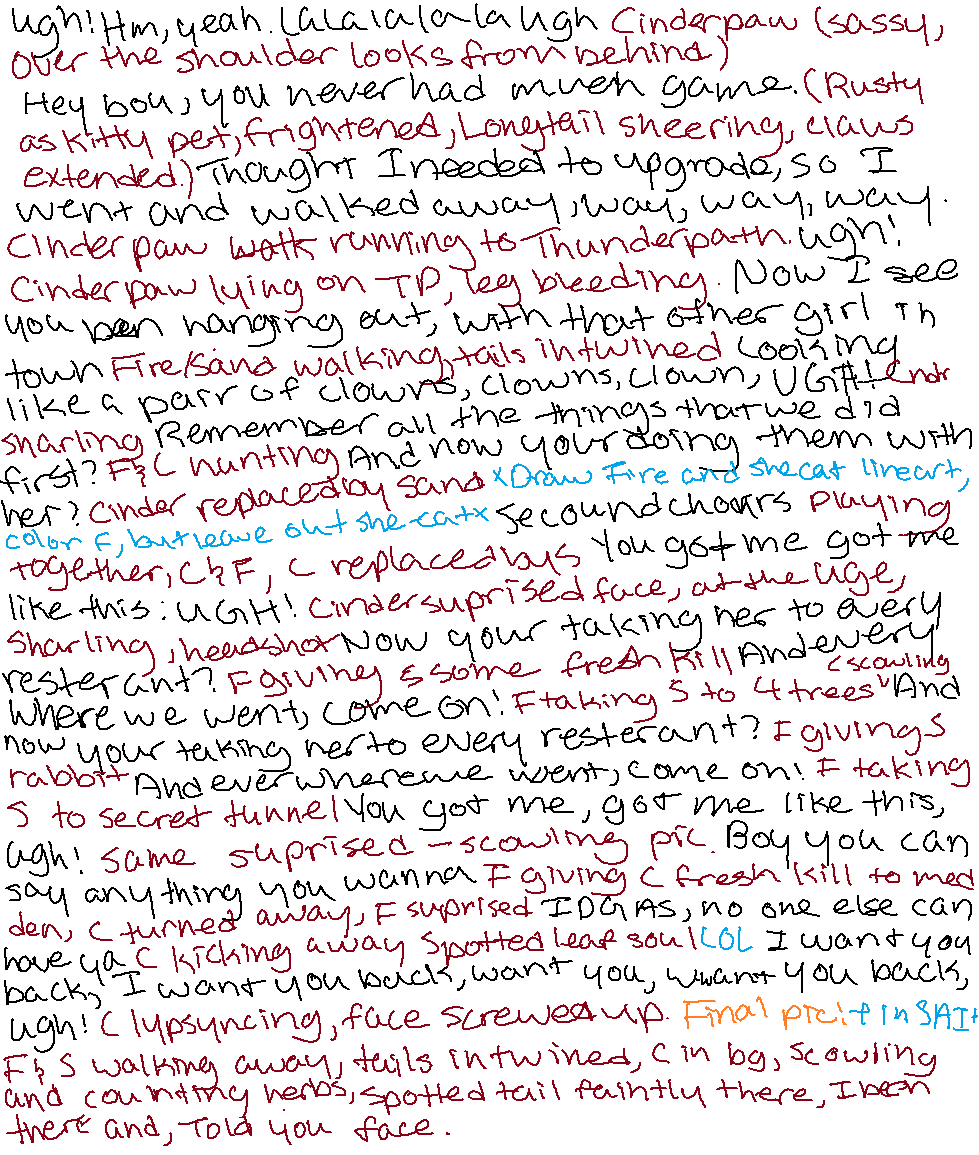 ugh! Hm, yeah. Lalalalala ugh Cinderpaw (sassy,
over the shoulder looks from behind)
Hey boy, you never had much game. (Rusty
as kitty pet, frightened, Longtail sheering, claws
extended.) Thought I needed to upgrade, so I
went and walked away, way, way, way.
Cinderpaw walk running to Thunderpath. ugh!
Cinderpaw lying on TP, leg bleeding. Now I see
you been hanging out, with that other girl in
town Fire/Sand walking, tails intwined Looking
like a pair of clowns, clowns, clown, UGH! Cndr
snarling Remember all the things that we did
first? F & C hunting And now your doing them with
her? Cinder replaced by sand *Draw Fire and she cat lineart,
color F, but leave out she-cat* secound chours Playing
together, C & F, C replaced by S You got me got me
like this: UGH! Cinder suprised face, at the uge,
Snarling, headshot Now your taking her to every
resterant? F giving S some fresh kill And every
where we went, come on! F taking S to 4 trees C scowling And
now your taking her to every resterant? F giving S
rabbit And everwhere we went, come on! F taking
S to secret tunnel You got me, got me like this,
ugh! same suprised - scowling pic. Boy you can
say anything you wanna F giving C fresh kill to med
den, C turned away, F suprised IDGAS, no one else can
have ya C kicking away Spottedleaf soul LOL I want you
back, I want you back, want you, want you back,
ugh! C lypsyncing, face screwed up. Final pic! in SAI
F & S walking away, tails intwined, C in bg, scowling
and counting herbs, spotted tail faintly there, I been
there and, Told you face.